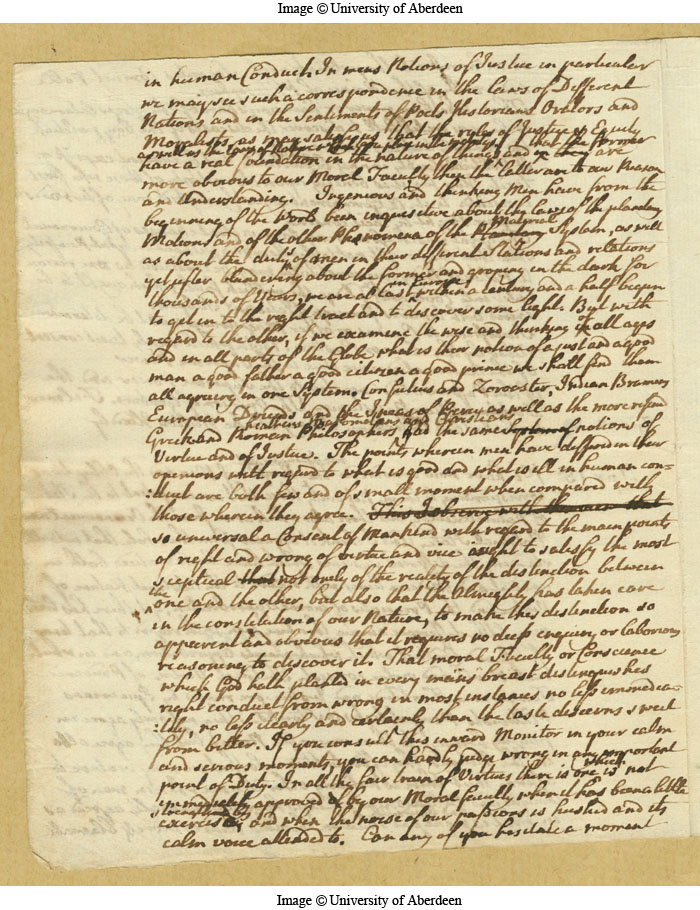 Image © University of Aberdeen
in human Conduct. In mens Notions of Justice in particular
we may see such a correspondence in the laws of Different
Nations and in the Sentiments of Poets Historians Orators and
Moralists, as may satisfy us that the rules of Justice & Equity
as well as the laws of Nature that the former
have a real foundation in the nature of things and are
more obvious to our Moral Faculty than the latter are to our Reason
and Understanding. Ingenious and thinking Men have from the
beginning of the World been inquisitive about the laws of the planetary
Material
Motions and of the other Phenomena of the System, as well
as about the dutys of men in their different Stations and relations
yet after blundering about the former and groping in the dark for
in Europe
thousands of Years, we are at last within a century and a half begun
to get in to the right tract and to discover some light. But with
regard to the other, if we examine the wise and thinking in all ages
and in all parts of the Globe what is their notion of a just and a good
man a good father a good citizen a good prince we shall find them
all agreeing in one System, Confusius and Zoroaster, Indian Bramins
European Druids and the Inceas of Perru as well as the more refind
heathens Mahometans and Christians
Greek and Roman Philosophers had the same notions of
Virtue and of Justice. The points wherein men have differd in their
opinions with regard to what is good and what is ill in human con-
:duct are both few and of small moment when compared with
those wherein they agree. This I observe with that
so universal a Consent of Mankind with regard to the main points
of right and wrong of virtue and vice ought to satisfy the most
sceptical that not onely of the reality of the distinction between
the
one and the other, but also that the Almighty has taken care
in the constitution of our Nature, to make this distinction so
apparent and obvious that it requires no deep enquiry or laborious
reasoning to discover it. That moral Faculty or Conscience
which God hath planted in every mans breast distinguishes
right conduct from wrong in most instances no less immedia-
:tely, no less clearly and certainly than the taste discerns sweet
from bitter. If you consult this inward Monitor in your calm
and serious moments, you can hardly judge wrong in any important
which
point of Duty. In all the fair train of Virtues there is one is not
immediately approved of by our Moral faculty when it has been a little
strengthned by
exercise, and when the noise of our passions is hushed and its
calm voice attended to. Can any of you hesitate a moment
Image © University of Aberdeen